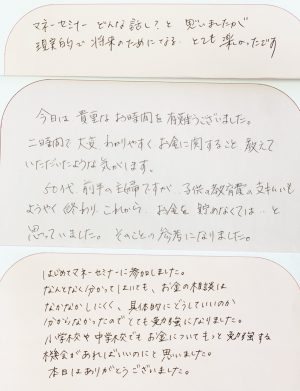 マネーセミナー どんな話し？と 思いましたが
現実的で 将来のためになる とても 楽しかったです
今日は 貴重な お時間を 有難うございました。
二時間で 大変 わかりやすく お金に関すること 教えて
いただいたような 気がします。
50代 前半の 主婦ですが、子供の教育費の支払いも
ようやく 終わり これから、お金を 貯めなくては‥と
思っていました。そのことの 参考になりました。
はじめてマネーセミナーに参加しました。
なんとなく分かってはいても、お金の相談は
なかなかしにくく、具体的にどうしていいのか
分からなかったのでとても勉強になりました。
小学校や中学校でもお金についてもっと勉強する
機会があればいいのにと思いました。
本日はありがとうございました。